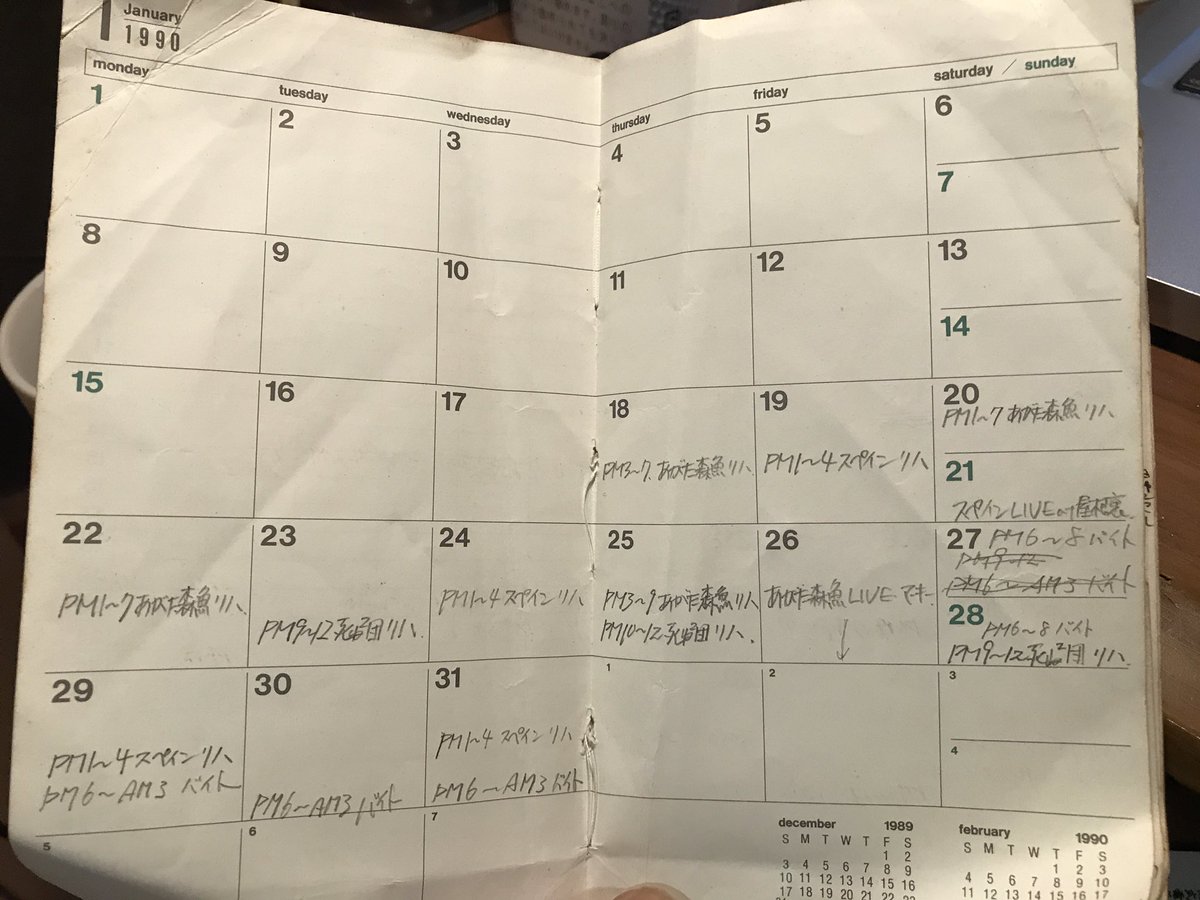 1 January
1990
monday
tuesday
wednesday
thursday
friday
saturday / sunday
1
2
3
4
5
6
7
8
9
10
11
12
13
14
15
16
17
18
PM3〜7 あがた森魚リハ
19
PM1〜4 スペインリハ
20
PM1〜7 あがた森魚リハ
21
スペインLIVE at 屋根裏
22
PM1〜7 あがた森魚リハ
23
PM9〜12 団リハ
24
PM1〜4 スペインリハ
25
PM3〜9 あがた森魚リハ
PM10〜12 団リハ
26
あがた森魚LIVE
↓
27 PM6〜8 バイト
PM9〜12
PM6〜AM3 バイト
28
PM6〜8 バイト
PM9〜12 団リハ
29
PM1〜4 スペインリハ
PM6〜AM3 バイト
30
PM6〜AM3 バイト
31
PM1〜4 スペインリハ
PM6〜AM3 バイト
1
2
3
4
5
6
7
december 1989
S M T W T F S
1 2
3 4 5 6 7 8 9
10 11 12 13 14 15 16
17 18 19 20 21 22 23
february 1990
S M T W T F S
1 2 3
4 5 6 7 8 9 10
11 12 13 14 15 16 17